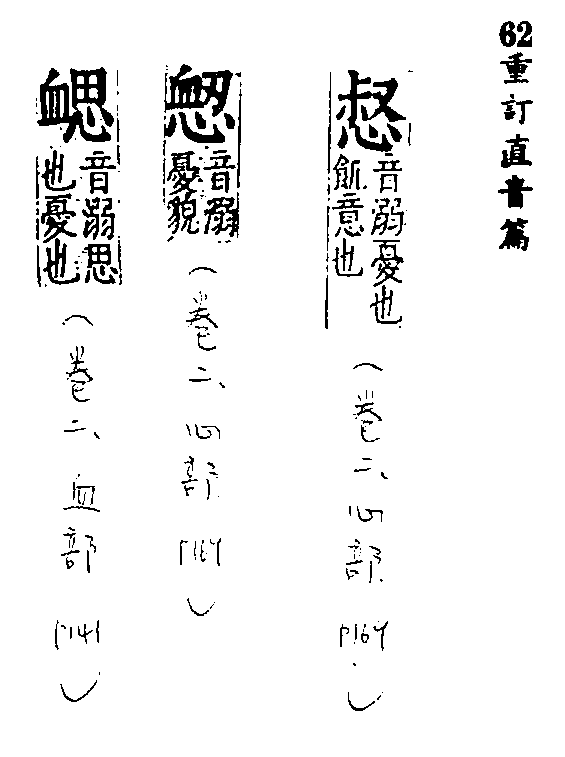 62重訂直音篇
惄
音溺憂也
飢意也
（卷二、心部P164）
音溺
憂貌
（卷二、心部P164）
音溺思
也憂也
（卷二、血部P141）